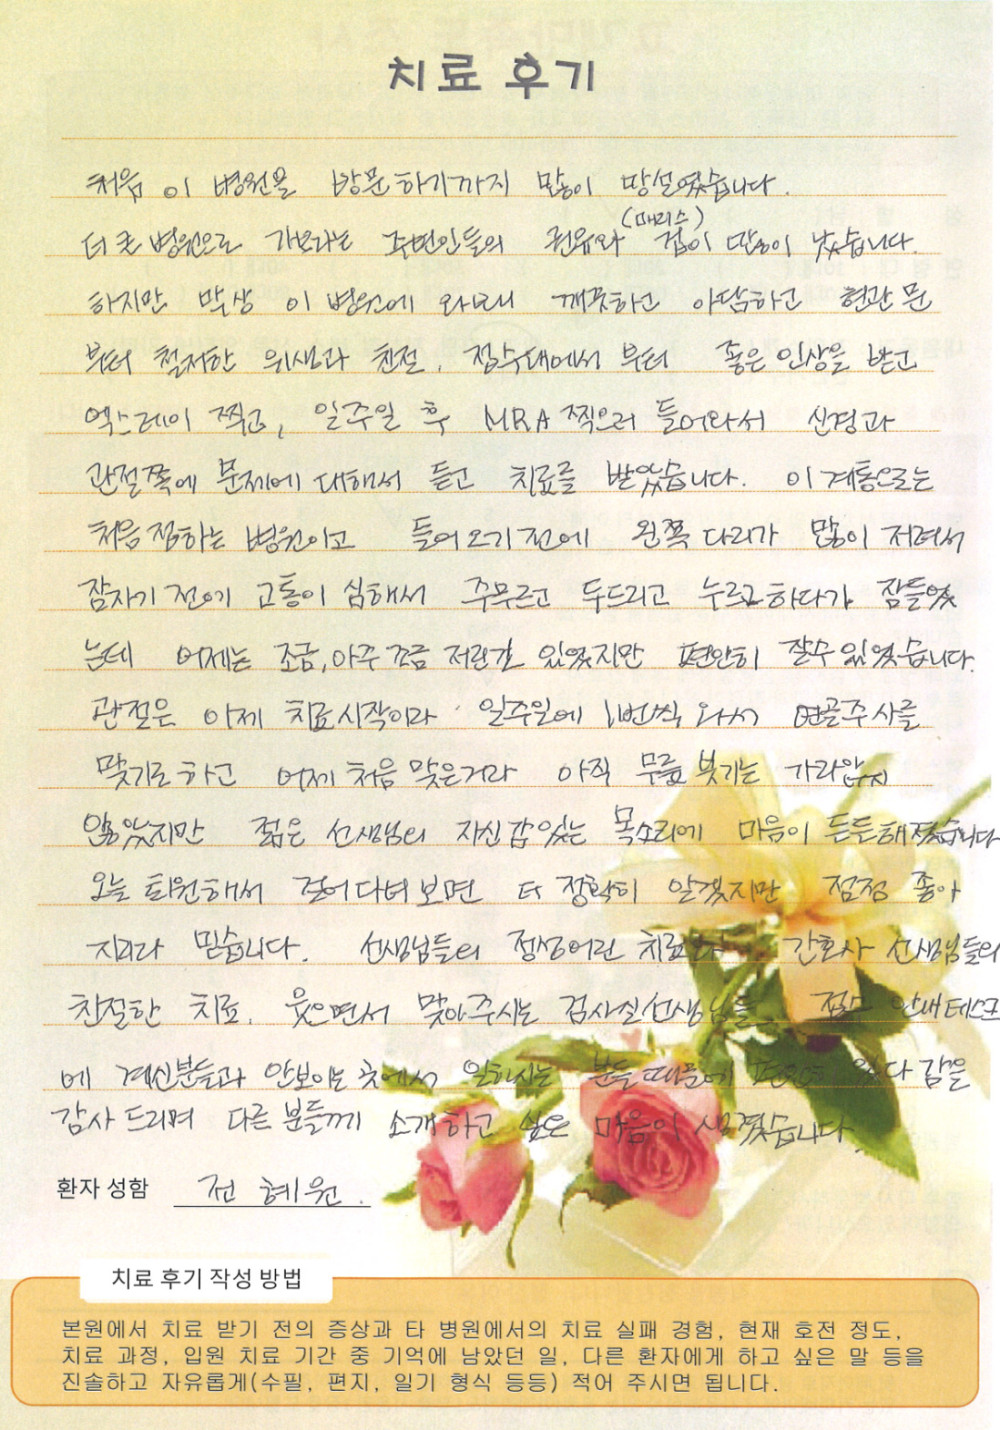 치료 후기
처음 이 병원을 방문하기까지 많이 망설였습니다.
(매리수)
더 큰 병원으로 가보라는 주변인들의 권유와 겁이 많이 났습니다.
하지만 막상 이 병원에 와보니 깨끗하고 아담하고 현관문
부터 철저한 위생과 친절, 접수대에서 부터 좋은 인상을 받고
엑스레이 찍고, 일주일 후 MRA 찍으러 들어와서 신경과
관절쪽에 문제에 대해서 듣고 치료를 받았습니다. 이 계통으로는
처음 접하는 병원이고 들어오기 전에 왼쪽 다리가 많이 저려서
잠자기 전에 고통이 심해서 주무르고 두드리고 누르고 하다가 잠들었
는데 어제는 조금, 아주 조금 저린걸 있었지만 편안히 잘수 있었습니다.
관절은 이제 치료 시작이라 일주일에 1번씩 와서 연골주사를
맞기로 하고 어제 처음 맞은거라 아직 무릎 붓기는 가라앉지
않았지만 젊은 선생님의 자신감있는 목소리에 마음이 든든해졌습니다
오늘 퇴원해서 걸어다녀보면 더 정확히 알겠지만 점점 좋아
지리라 믿습니다. 선생님들의 정성어린 치료와 간호사 선생님들의
친절한 치료, 웃으면서 맞아주시는 검사실선생님들 접수 안내데스크
에 계신분들과 안보이는 곳에서 일하시는 분들 때문에 편하게 있다 감을
감사드리며 다른 분들께 소개하고 싶은 마음이 생겼습니다
환자 성함 전 혜 원.
치료 후기 작성 방법
본원에서 치료 받기 전의 증상과 타 병원에서의 치료 실패 경험, 현재 호전 정도,
치료 과정, 입원 치료 기간 중 기억에 남았던 일, 다른 환자에게 하고 싶은 말 등을
진솔하고 자유롭게(수필, 편지, 일기 형식 등등) 적어 주시면 됩니다.